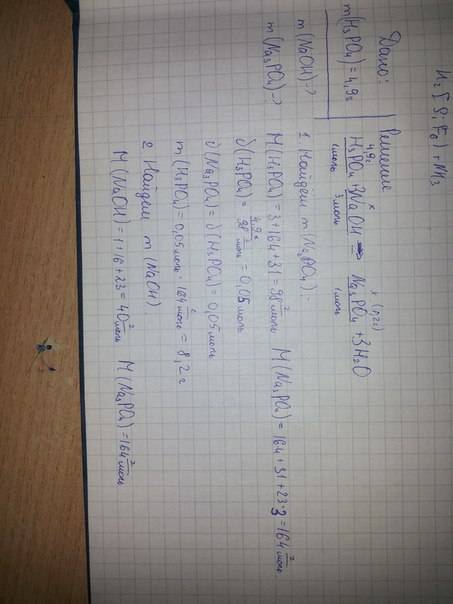 H₂[SiF₆] + NH₃
Дано:
m(H₃PO₄) = 4,9г
m(NaOH) - ?
m(Na₃PO₄) - ?
Решение
4,9г x
H₃PO₄ + 3NaOH → Na₃PO₄ + 3H₂O
1моль 3моль 1моль
1. Найдем m(Na₃PO₄):
M(H₃PO₄) = 3+16·4+31 = 98 г/моль M(Na₃PO₄) = 16·4+31+23·3 = 164 г/моль
δ(H₃PO₄) = 4,9г / 98 г/моль = 0,05 моль
δ(Na₃PO₄) = δ(H₃PO₄) = 0,05 моль
m(H₃PO₄) = 0,05 моль · 164 г/моль = 8,2 г
2. Найдем m(NaOH)
M(NaOH) = 1+16+23 = 40 г/моль M(Na₃PO₄) = 164 г/моль